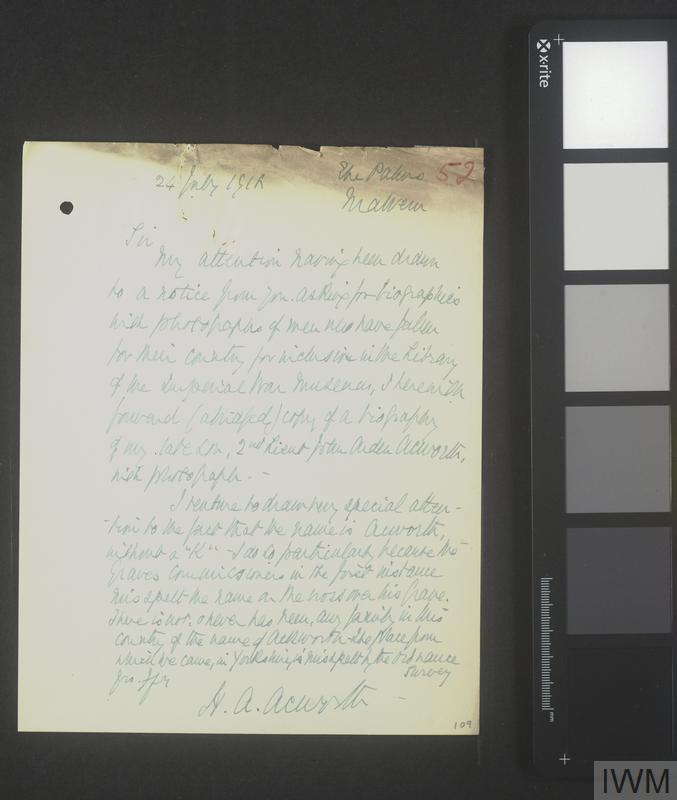 24 July 1918
The Palms 52
Malvern
Sir
My attention having been drawn
to a notice from you asking for biographies
with photographs of men who have fallen
for their country for inclusion in the Library
of the Imperial War Museum, I herewith
forward (abridged) copy of a biography
of my late son, 2nd Lieut John Arden Acworth,
with photograph. -
I venture to draw very special atten-
-tion to the fact that the name is Acworth,
without a "K" - I do so particularly because the
Graves Commissioners in the first instance
misspelt the name on the cross over his grave.
There is not, or ever has been, any family in this
country of the name of Ackworth - the place from
which we came, in Yorkshire, is misspelt by the Ordnance
Survey
H. A. Acworth -
109
x-rite
mm
IWM